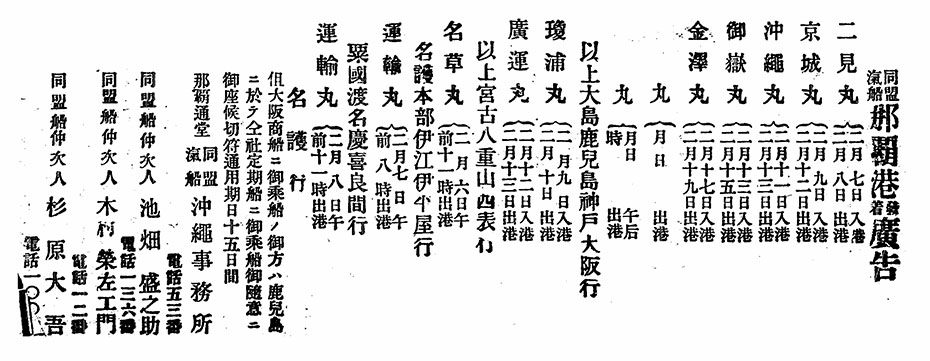 同盟汽船 那覇港發着廣告
二見丸 二月七日入港 二月八日出港
京城丸 二月九日入港 二月十二日出港
沖繩丸 二月十一日入港 二月十三日出港
御嶽丸 二月十五日出港
金澤丸 二月十七日入港 二月十九日出港
丸 月日 出港
丸 月日 午后 時 出港
以上大島鹿兒島神戸大阪行
瓊浦丸 二月九日入港 二月十日出港
廣運丸 二月十二日入港 二月十三日出港
以上宮古八重山四表行
名草丸 二月六日午前十一時出港
名護本部伊江伊平屋行
運輸丸 二月七日午前八時出港
粟國渡名慶喜良間行
運輸丸 二月八日午前十一時出港
名護行
但大阪商船ニ御乘船ノ御方ハ鹿兒島
ニ於テ仝社定期船ニ御乘船御隨意ニ
御座候切符通用期日十五日間
那覇通堂 同盟汽船 沖繩事務所
電話五三番
同盟船仲次人 池畑盛之助
電話一三六番
同盟船仲次人 木村榮左工門
電話一二番
同盟船仲次人 杉原大吾
電話一〇〇